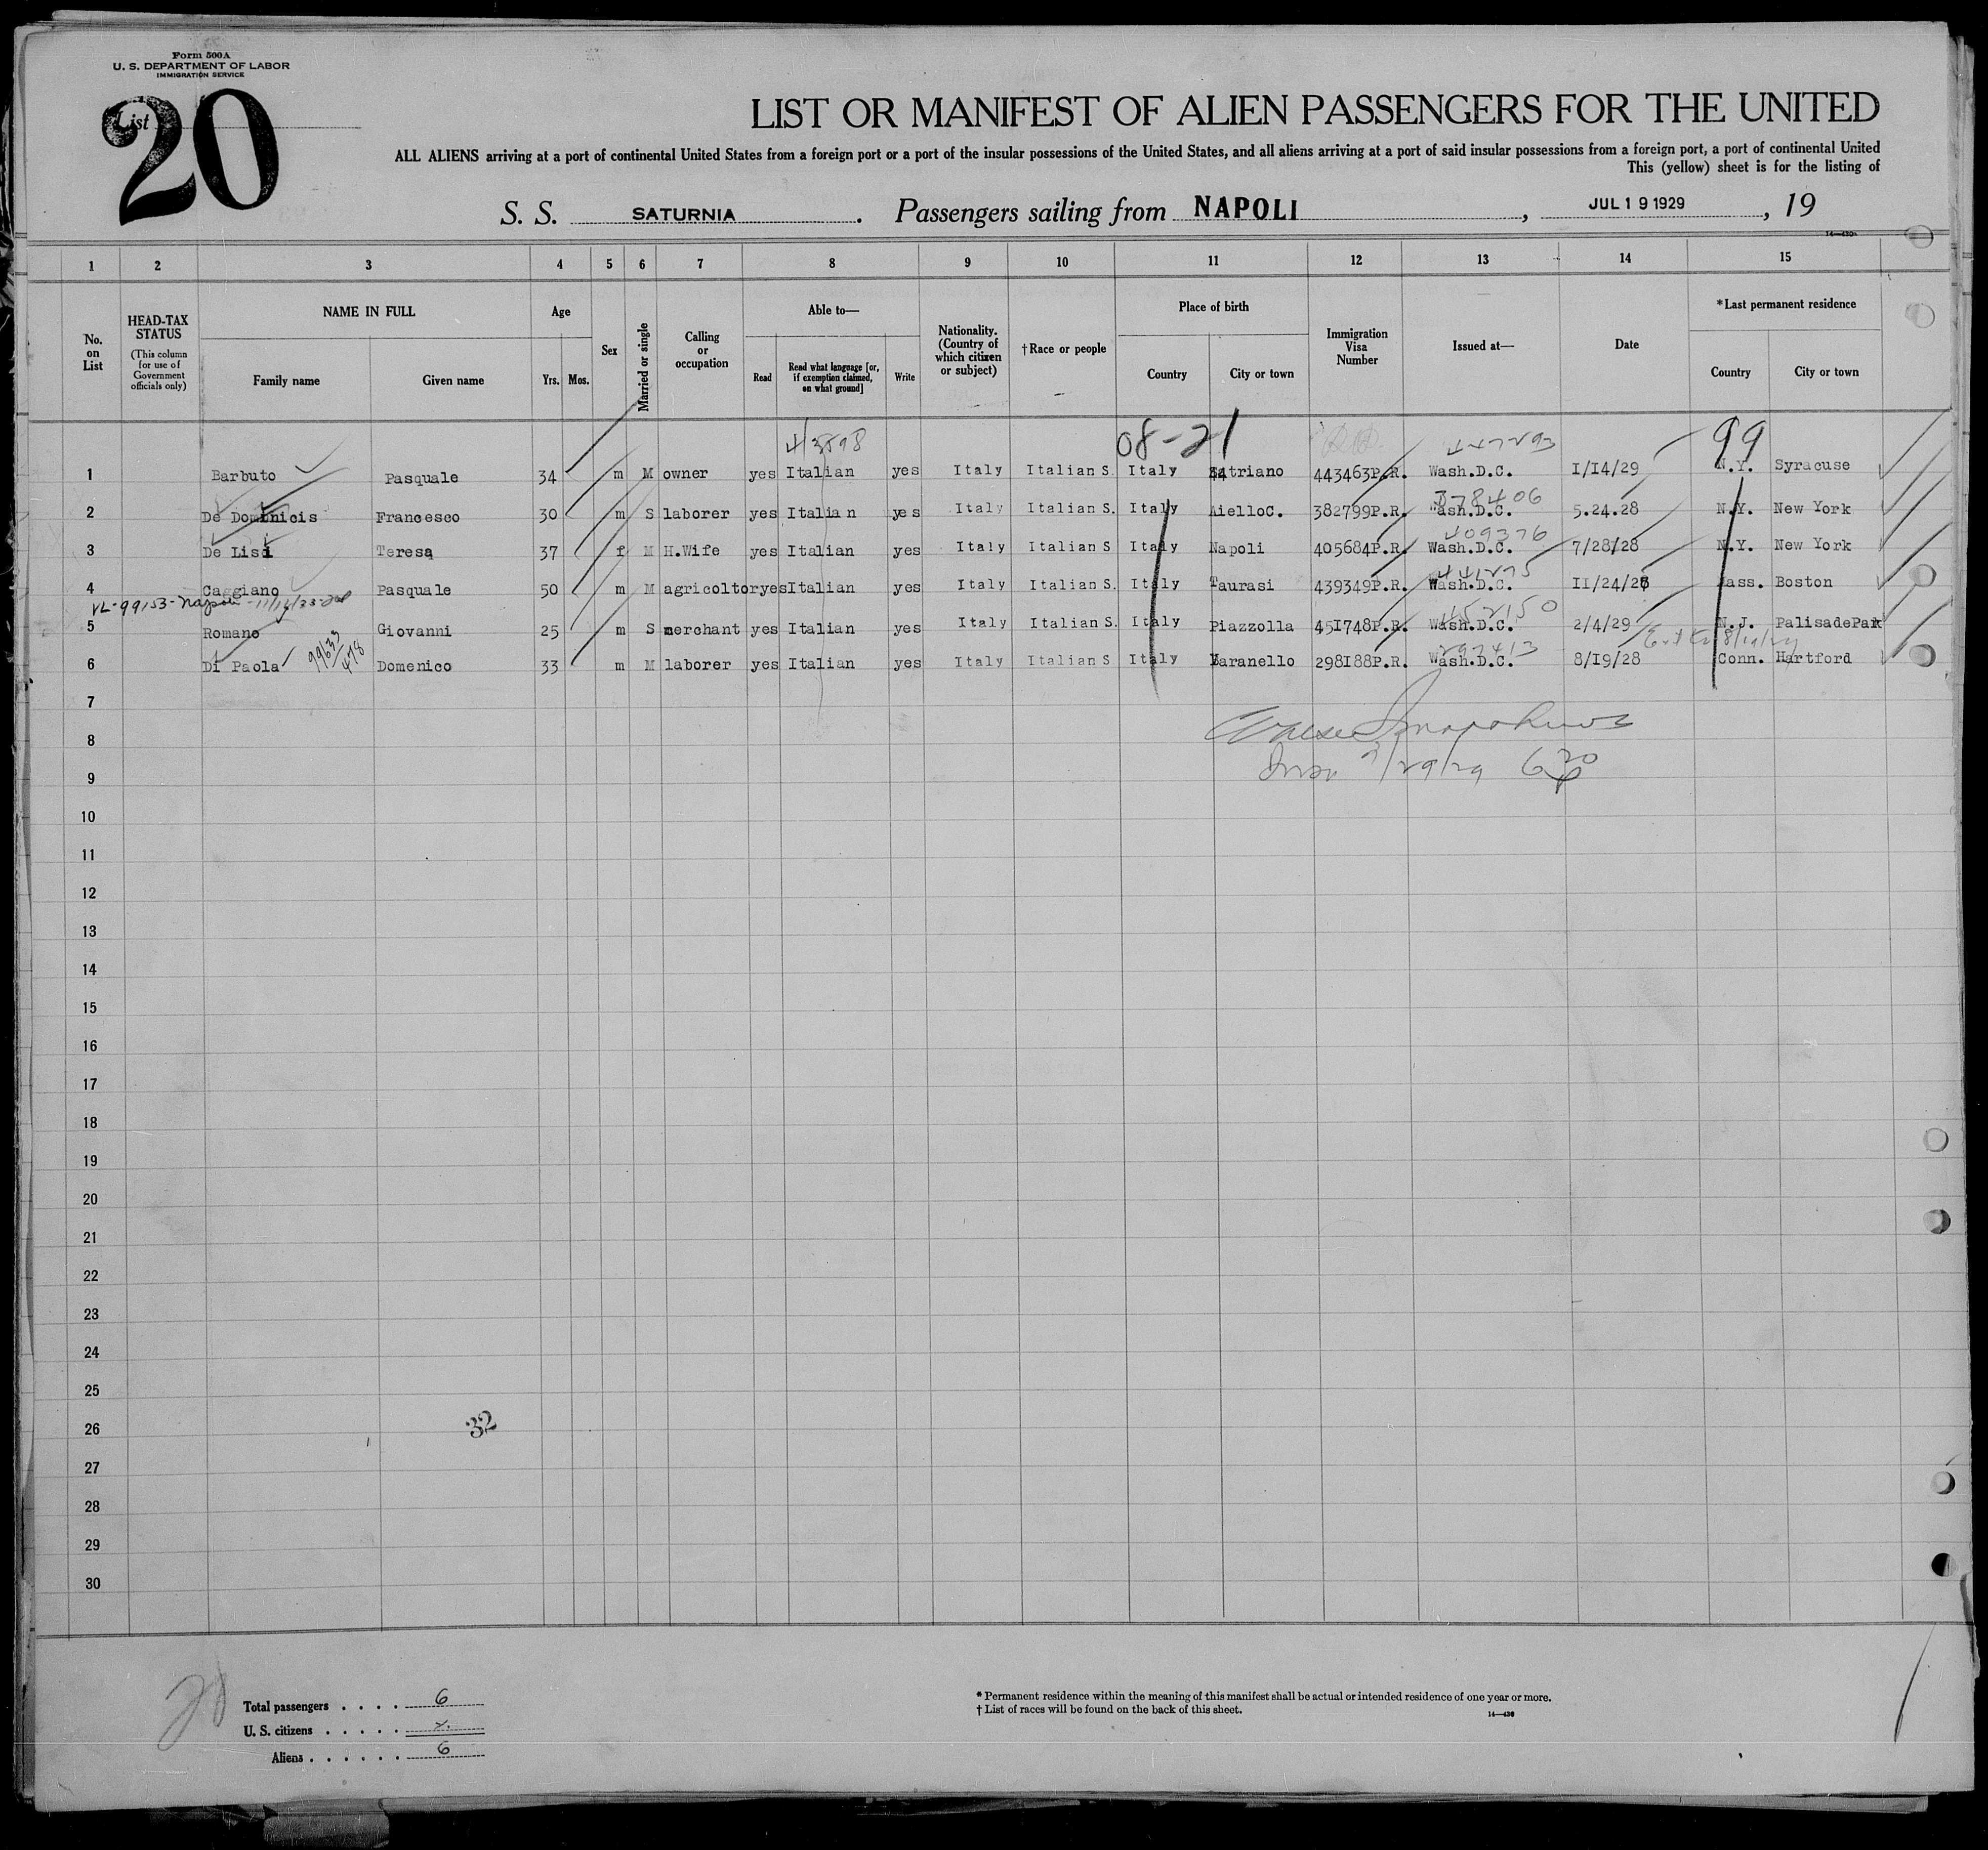 Form 500A
U. S. DEPARTMENT OF LABOR
IMMIGRATION SERVICE
List
20
LIST OR MANIFEST OF ALIEN PASSENGERS FOR THE UNITED
ALL ALIENS arriving at a port of continental United States from a foreign port or a port of the insular possessions of the United States, and all aliens arriving at a port of said insular possessions from a foreign port, a port of continental United
This (yellow) sheet is for the listing of
S. S. SATURNIA. Passengers sailing from NAPOLI, JUL 19 1929, 19
1 2 3 4 5 6 7 8 9 10 11 12 13 14 15
No. on List
HEAD-TAX STATUS (This column for use of Government officials only)
NAME IN FULL Family name Given name
Age Yrs. Mos.
Sex
Married or single
Calling or occupation
Able to— Read Read what language [or, if exemption claimed, on what ground] Write
Nationality. (Country of which citizen or subject)
†Race or people
Place of birth Country City or town
Immigration Visa Number
Issued at—
Date
*Last permanent residence Country City or town
4/3898 08-21 447293 99
1 Barbuto Pasquale 34 m M owner yes Italian yes Italy Italian S. Italy Satriano 443463P.R. Wash.D.C. 1/14/29 N.Y. Syracuse
378406
2 De Dominicis Francesco 30 m S laborer yes Italian yes Italy Italian S. Italy AielloC. 382799P.R. Wash.D.C. 5.24.28 N.Y. New York
409376
3 De Lisi Teresa 37 f M H.Wife yes Italian yes Italy Italian S Italy Napoli 405684P.R. Wash.D.C. 7/28/28 N.Y. New York
441275
4 Caggiano Pasquale 50 m M agricoltor yes Italian yes Italy Italian S. Italy Taurasi 439349P.R. Wash.D.C. 11/24/28 Mass. Boston
VL-99153-Napoli
452150
5 Romano Giovanni 25 m S merchant yes Italian yes Italy Italian S. Italy Piazzolla 451748P.R. Wash.D.C. 2/4/29 N.J. PalisadePark
99633/478 297413 8/19/29
6 Di Paola Domenico 33 m M laborer yes Italian yes Italy Italian S Italy Maranello 298188P.R. Wash.D.C. 8/19/28 Conn. Hartford
7
8
7/29/29 630
9
10
11
12
13
14
15
16
17
18
19
20
21
22
23
24
25
26
32
27
28
29
30
20
Total passengers . . . . 6
U. S. citizens . . . . .
Aliens . . . . . . 6
* Permanent residence within the meaning of this manifest shall be actual or intended residence of one year or more.
† List of races will be found on the back of this sheet.
14—430